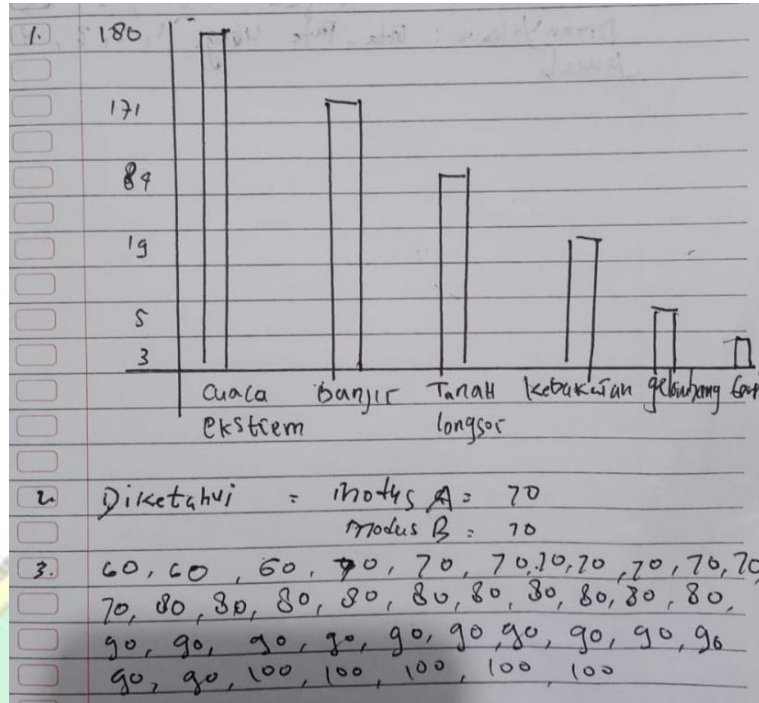 1. 180
171
84
19
5
3
Cuaca Banjir Tanah Kebakaran gelombang
ekstrem longsor
2. Diketahui = Modus A = 70
Modus B = 70
3. 60, 60, 60, 70, 70, 70, 70, 70, 70, 70, 70
70, 80, 80, 80, 80, 80, 80, 80, 80, 80, 80,
90, 90, 90, 90, 90, 90, 90, 90, 90, 90
90, 90, 100, 100, 100, 100, 100